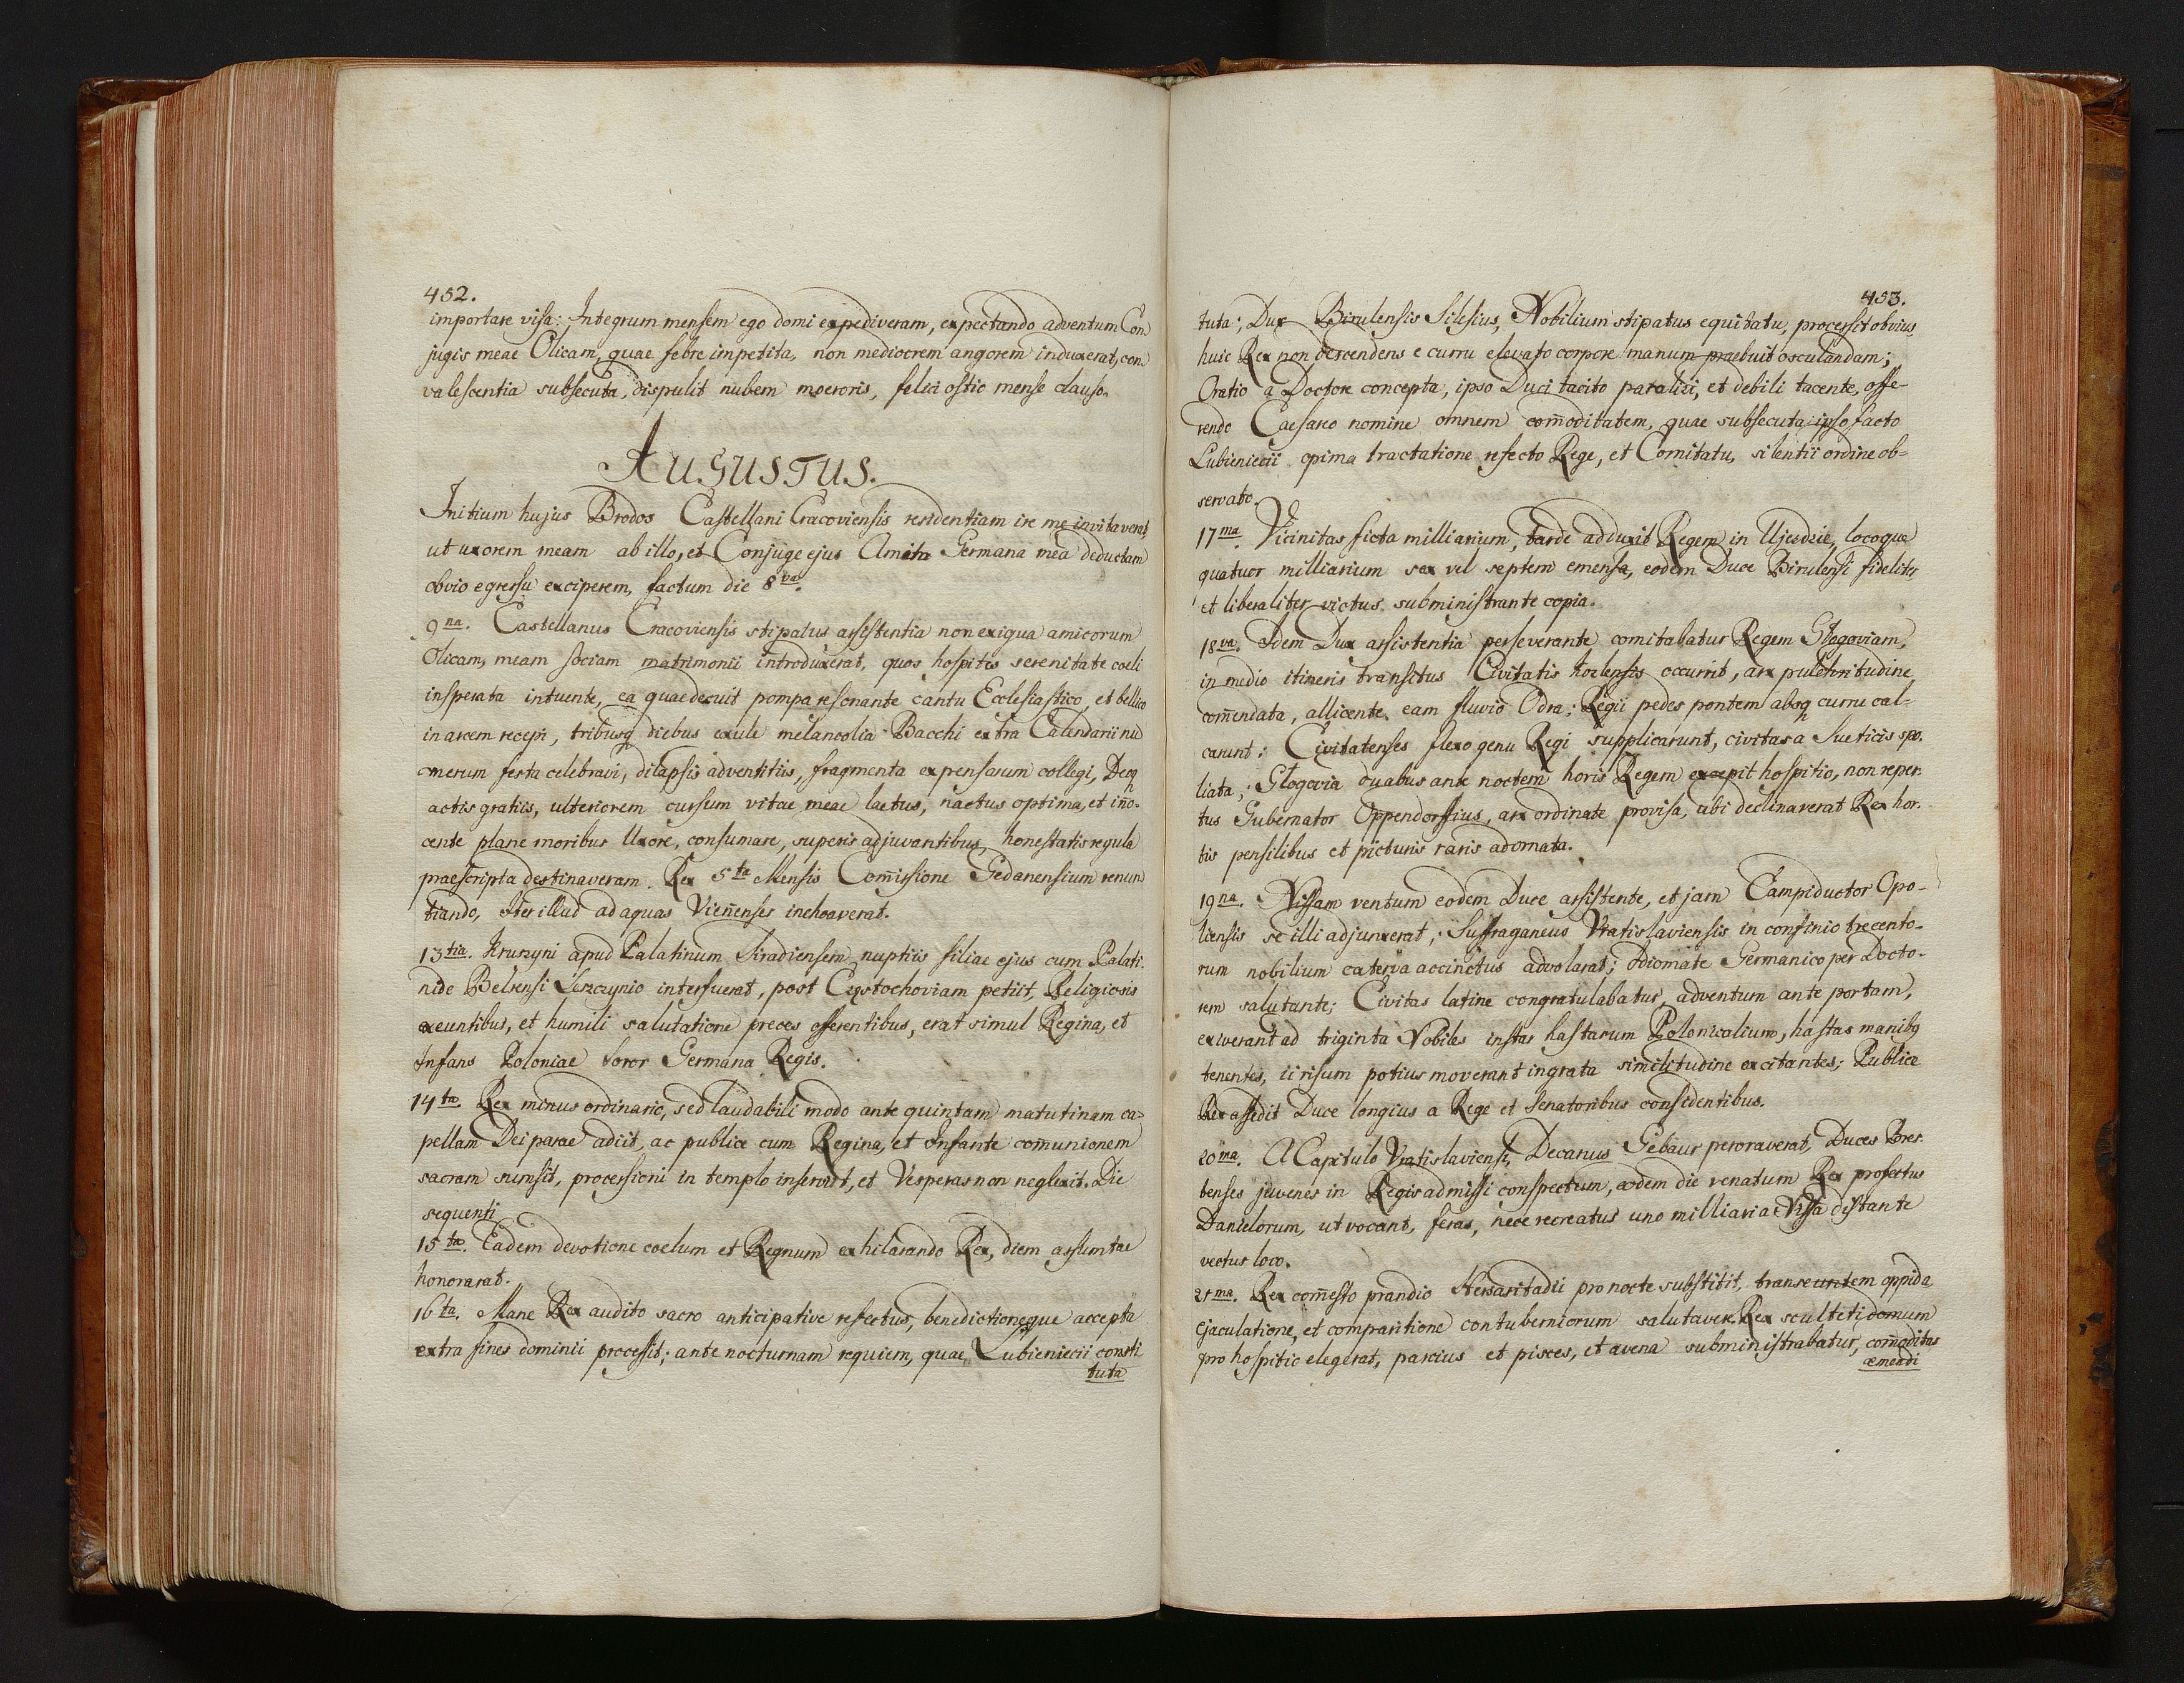 452.
importare visa: Integrum mensem ego domi expediveram, expectando adventum Con
jugis meae Olicam, quae febre impetita, non mediocrem angorem induxerat, con
valescentia subsecuta, dispulit nubem moeroris, felici ostio mense clauso.
AUGUSTUS.
Initium hujus Brodos Castellani Cracoviensis residentiam ire me invitaverat,
ut uxorem meam ab illo, et Conjuge ejus Amita Germana mea deductam
obvio egressu exciperem, factum die 8va.
9na. Castellanus Cracoviensis stipatus assistentia non exigua amicorum
Olicam, meam sociam matrimonii introduxerat, quos hospites serenitate coeli
insperata intuente, ea quae decuit pompa resonante cantu Ecclesiastico, et bellico
in arcem recepi, tribusq diebus exule melancolia Bacchi extra Calendarii nu
merum festa celebravi, dilapsis adventitiis, fragmenta expensarum collegi, Deoq
actis gratiis, ulteriorem cursum vitae meae laetus, nactus optima, et iño-
cente plane moribus Uxore, consumare, superis adjuvantibus, honestatis regula
praescripta destinaveram. Rex 5ta Mensis Com̄issione Gedanensium renun
tiando, Iter illud ad aquas Vieñenses inchoaverat.
13tia. Kruszyni apud Palatinum Siradiensem nuptiis filiae ejus cum Palati-
nide Belsensi Leszczynio interfuerat, post Czestochoviam petiit, Religiosis
exeuntibus, et humili salutatione preces offerentibus, erat simul Regina, et
Infans Poloniae Soror Germana Regis.
14ta. Rex minus ordinario, sed laudabili modo ante quintam matutinam ca-
pellam Deiparae adiit, ac publice cum Regina, et Infante com̄unionem
sacram sumsit, processioni in templo inserviit, et Vesperas non neglexit. Die
sequenti
15ta. Eadem devotione coelum et Regnum exhilarando Rex, diem assumtae
honorarat.
16ta. Mane Rex audito sacro anticipative refectus, benedictioneque accepta
extra fines dominii processit; ante nocturnam requiem, quae Lubieniecii consti
tuta
453.
tuta; Dux Birulensis Silesius, Nobilium stipatus equitatu, processit obvius,
huic Rex non descendens e curru elevato corpore manum praebuit osculandam;
Oratio a Doctore concepta, ipso Duci tacito paralisi, et debili tacente, offe-
rendo Caesareo nomine omnem com̄oditatem, quae subsecuta ipso facto
Lubieniecii opima tractatione refecto Rege, et Comitatu, silentii ordine ob-
servato.
17ma. Vicinitas ficta milliarium, tarde adduxit Regem in Ujezdzie, locoque
quatuor milliarium sex vel septem emensa, eodem Duce Birulensi fideliter
et liberaliter victus subministrante copia.
18va. Idem Dux assistentia perseverante comitabatur Regem Glogoviam,
in medio itineris transitus Civitatis Kozlensis occurrit, arx pulchritudine
com̄endata, alliciente eam fluvio Odra; Regii pedes pontem absq curru cal-
carunt; Civitatenses flexo genu Regi supplicarunt, civitas a Sueticis spo-
liata; Glogovia duabus ante noctem horis Regem excepit hospitio, non reper-
tus Gubernator Oppendorffius, arx ordinate provisa, ubi declinaverat Rex hor-
tis pensilibus et picturis raris adornata.
19na. Nissam ventum eodem Duce assistente, et jam Campiductor Opo-
liensis se illi adjunxerat; Suffraganeus Vratislaviensis in confinio trecento-
rum nobilium caterva accinctus advolarat; Idiomate Germanico per Docto-
rem salutante; Civitas latine congratulabatur adventum ante portam,
exiverant ad triginta Nobiles instar hastarum Polonicalium, hastas manibq
tenentes, ii risum potius moverant ingrata similitudine excitantes; Publice
Rex assedit Duce longius a Rege et Senatoribus considentibus.
20ma. A Capitulo Vratislaviensi, Decanus Gebaur peroraverat, Duces Bres-
benses juvenes in Regis admissi conspectum, eodem die venatum Rex profectus
Danielorum, ut vocant, feras, nece recreatus uno milliaria Nissa distante
vectus loco.
21ma. Rex com̄esto prandio Hersaritadii pro nocte substitit, transeuntem oppida
ejaculatione, et comparitione contuberniorum salutavere. Rex sculteti domum
pro hospitio elegerat, parcius et pisces, et avena subministrabatur, com̄oditas
aemendi